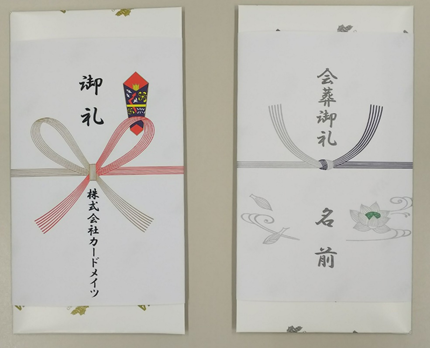 御礼
株式会社カードメイツ
会葬御礼
名前